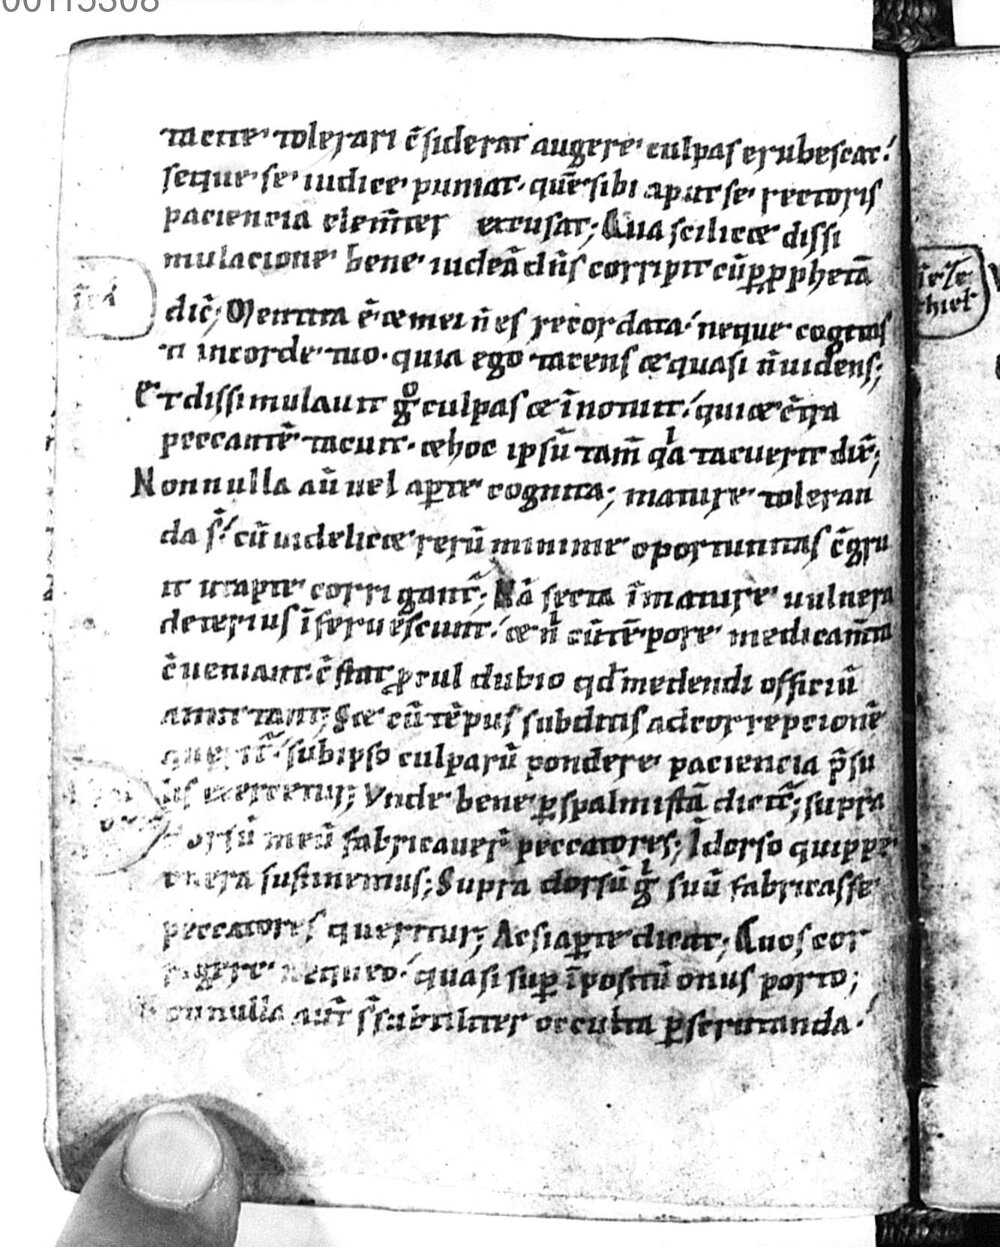 00115308
tacite tolerari c̄siderat augere culpas erubescat.
seque se iudice puniat. quē sibi aput se rectoris
paciencia clem̄ter excusat; Qua scilicet dissi
mulacione bene iudeā dn̄s corripit cū ꝑ ꝓphetā
dic̄; Mentita ē et mei n̄ es recordata. neque cogitas
ti in corde tuo. quia ego tacens et quasi n̄ uidens;
Et dissimulauit gͦ culpas et īnotuit. qui et c̄tra
peccantē tacuit. et hoc ipsū tam̄ qͣ tacuerit dix̄;
Nonnulla aū uel aꝑte cognita; mature toleran
da s̄. cū uidelicet rerū minime oportunitas c̄gru
it ut apte corrigant̄; Nā secta īmature uulnera
deterius īferuescunt. et n̄ cū tēpore medicam̄ta
c̄ueniant. c̄stat ꝓcul dubio qd̄ medendi officiū
amittant; Set cū tēpus subditis ad correpcionē
querit̄. sub ipso culparū pondere paciencia p̄su
lis exercetur; Vnde bene ꝑ spalmistā dicit̄; supra
dorsū meū fabricauer̄ peccatores; I dorso quippe
onera sustinemus; Supra dorsū gͦ suū fabricasse
peccatores queritur; Ac si aꝑte dicat; Quos cor
rigere nequeo. quasi suꝑ īpositū onus porto;
Nonnulla aūt s̄ subtiliter occulta ꝑscrutanda.
īeze
chiel